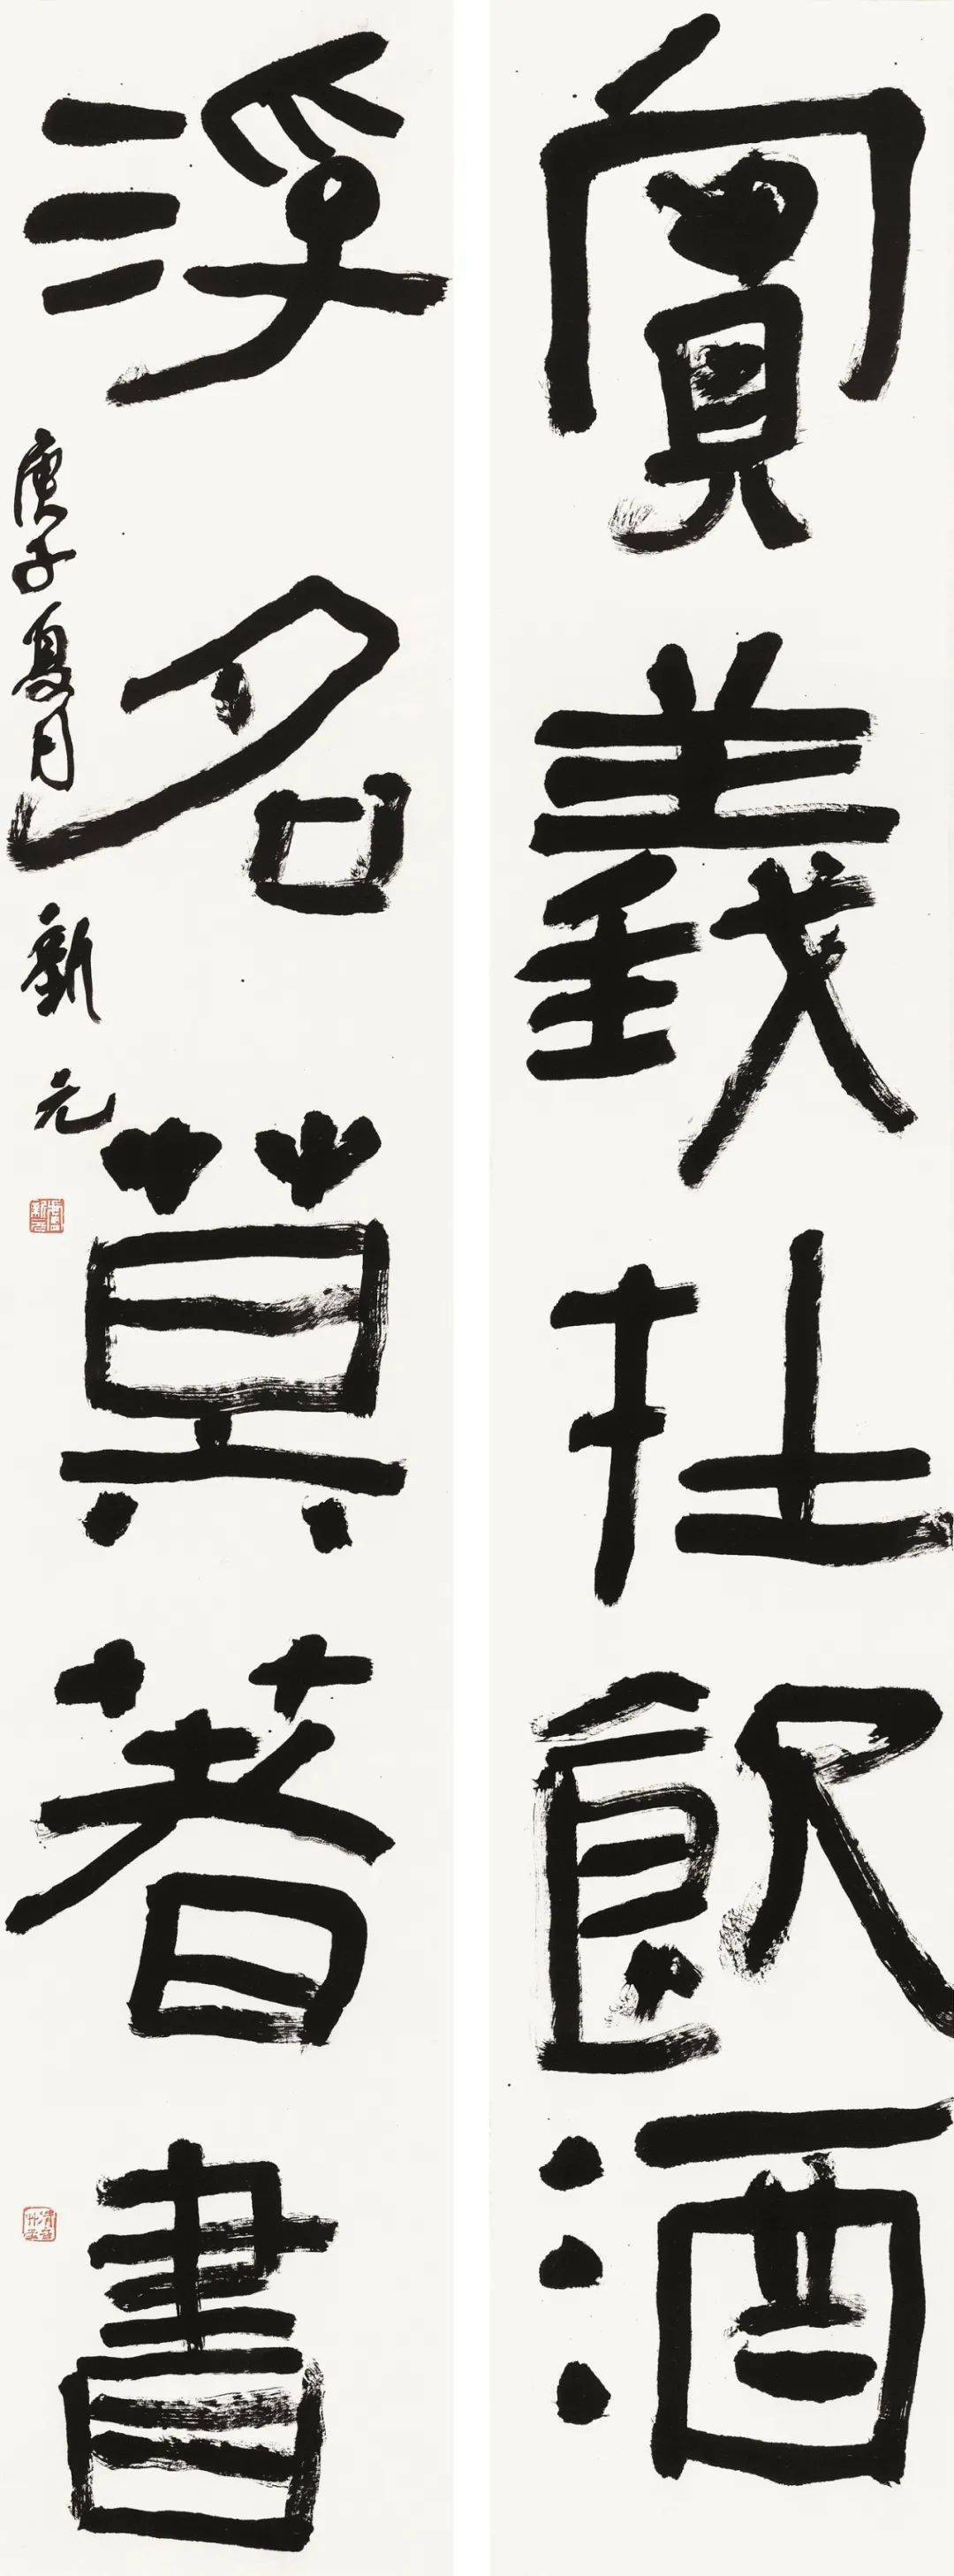 實義扗飲酒
浮名莫著書
庚子夏月 新元